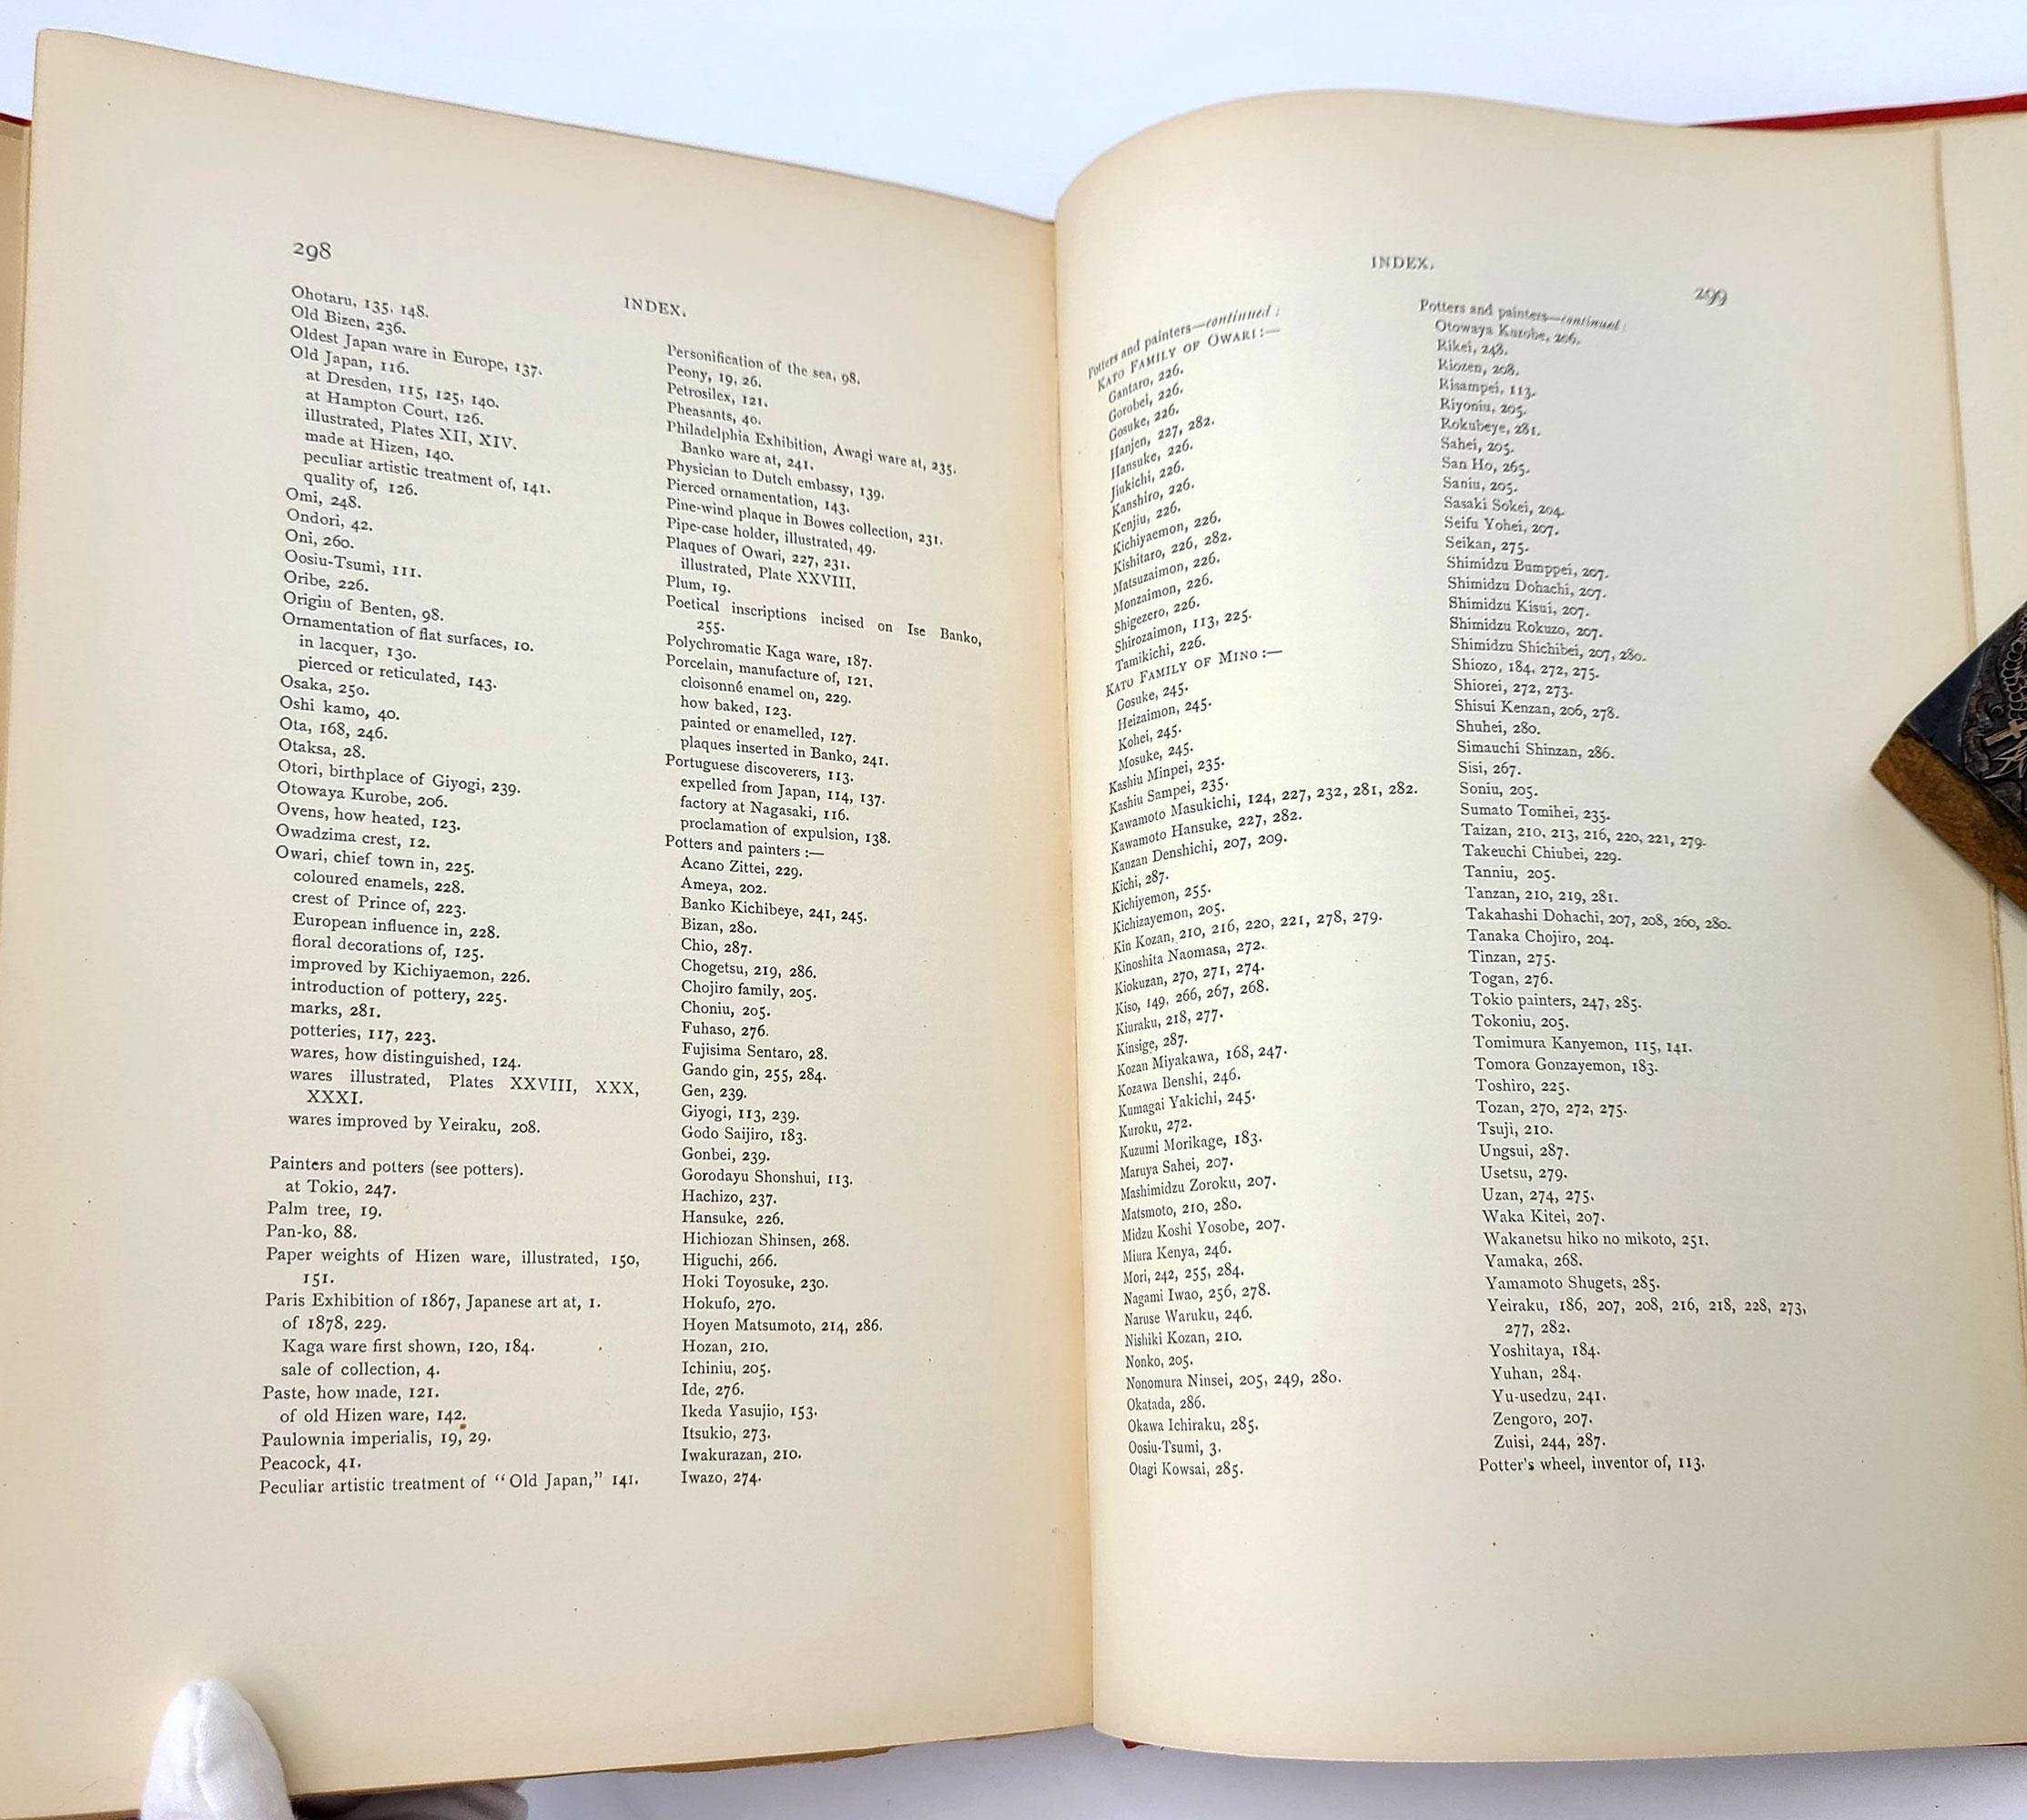 298
INDEX.
Ohotaru, 135, 148.
Old Bizen, 236.
Oldest Japan ware in Europe, 137.
Old Japan, 116.
at Dresden, 115, 125, 140.
at Hampton Court, 126.
illustrated, Plates XII, XIV.
made at Hizen, 140.
peculiar artistic treatment of, 141.
quality of, 126.
Omi, 248.
Ondori, 42.
Oni, 260.
Oosiu-Tsumi, 111.
Oribe, 226.
Origin of Benten, 98.
Ornamentation of flat surfaces, 10.
in lacquer, 130.
pierced or reticulated, 143.
Osaka, 250.
Oshi kamo, 40.
Ota, 168, 246.
Otaksa, 28.
Otori, birthplace of Giyogi, 239.
Otowaya Kurobe, 206.
Ovens, how heated, 123.
Owadzima crest, 12.
Owari, chief town in, 225.
coloured enamels, 228.
crest of Prince of, 223.
European influence in, 228.
floral decorations of, 125.
improved by Kichiyaemon, 226.
introduction of pottery, 225.
marks, 281.
potteries, 117, 223.
wares, how distinguished, 124.
wares illustrated, Plates XXVIII, XXX,
XXXI.
wares improved by Yeiraku, 208.
Painters and potters (see potters).
at Tokio, 247.
Palm tree, 19.
Pan-ko, 88.
Paper weights of Hizen ware, illustrated, 150,
151.
Paris Exhibition of 1867, Japanese art at, 1.
of 1878, 229.
Kaga ware first shown, 120, 184.
sale of collection, 4.
Paste, how made, 121.
of old Hizen ware, 142.
Paulownia imperialis, 19, 29.
Peacock, 41.
Peculiar artistic treatment of “Old Japan,” 141.
Personification of the sea, 98.
Peony, 19, 26.
Petrosilex, 121.
Pheasants, 40.
Philadelphia Exhibition, Awagi ware at, 235.
Banko ware at, 241.
Physician to Dutch embassy, 139.
Pierced ornamentation, 143.
Pine-wind plaque in Bowes collection, 231.
Pipe-case holder, illustrated, 49.
Plaques of Owari, 227, 231.
illustrated, Plate XXVIII.
Plum, 19.
Poetical inscriptions incised on Ise Banko,
255.
Polychromatic Kaga ware, 187.
Porcelain, manufacture of, 121.
cloisonné enamel on, 229.
how baked, 123.
painted or enamelled, 127.
plaques inserted in Banko, 241.
Portuguese discoverers, 113.
expelled from Japan, 114, 137.
factory at Nagasaki, 116.
proclamation of expulsion, 138.
Potters and painters :—
Acano Zittei, 229.
Ameya, 202.
Banko Kichibeye, 241, 245.
Bizan, 280.
Chio, 287.
Chogetsu, 219, 286.
Chojiro family, 205.
Choniu, 205.
Fuhaso, 276.
Fujisima Sentaro, 28.
Gando gin, 255, 284.
Gen, 239.
Giyogi, 113, 239.
Godo Saijiro, 183.
Gonbei, 239.
Gorodayu Shonshui, 113.
Hachizo, 237.
Hansuke, 226.
Hichiozan Shinsen, 268.
Higuchi, 266.
Hoki Toyosuke, 230.
Hokufo, 270.
Hoyen Matsumoto, 214, 286.
Hozan, 210.
Ichiniu, 205.
Ide, 276.
Ikeda Yasujio, 153.
Itsukio, 273.
Iwakurazan, 210.
Iwazo, 274.
INDEX.
299
Potters and painters—continued :
KATO FAMILY OF OWARI :—
Gantaro, 226.
Gorobei, 226.
Gosuke, 226.
Hanjen, 227, 282.
Hansuke, 226.
Jiukichi, 226.
Kanshiro, 226.
Kenjiu, 226.
Kichiyaemon, 226.
Kishitaro, 226, 282.
Matsuzaimon, 226.
Monzaimon, 226.
Shigezero, 226.
Shirozaimon, 113, 225.
Tamikichi, 226.
KATO FAMILY OF MINO :—
Gosuke, 245.
Heizaimon, 245.
Kohei, 245.
Mosuke, 245.
Kashiu Minpei, 235.
Kashiu Sampei, 235.
Kawamoto Masukichi, 124, 227, 232, 281, 282.
Kawamoto Hansuke, 227, 282.
Kanzan Denshichi, 207, 209.
Kichi, 287.
Kichiyemon, 255.
Kichizayemon, 205.
Kin Kozan, 210, 216, 220, 221, 278, 279.
Kinoshita Naomasa, 272.
Kiokuzan, 270, 271, 274.
Kiso, 149, 266, 267, 268.
Kiuraku, 218, 277.
Kinsige, 287.
Kozan Miyakawa, 168, 247.
Kozawa Benshi, 246.
Kumagai Yakichi, 245.
Kuroku, 272.
Kuzumi Morikage, 183.
Maruya Sahei, 207.
Mashimidzu Zoroku, 207.
Matsmoto, 210, 280.
Midzu Koshi Yosobe, 207.
Miura Kenya, 246.
Mori, 242, 255, 284.
Nagami Iwao, 256, 278.
Naruse Waruku, 246.
Nishiki Kozan, 210.
Nonko, 205.
Nonomura Ninsei, 205, 249, 280.
Okatada, 286.
Okawa Ichiraku, 285.
Oosiu-Tsumi, 3.
Otagi Kowsai, 285.
Potters and painters—continued :
Otowaya Kurobe, 206.
Rikei, 248.
Riozen, 208.
Risampei, 113.
Riyoniu, 205.
Rokubeye, 281.
Sahei, 205.
San Ho, 265.
Saniu, 205.
Sasaki Sokei, 204.
Seifu Yohei, 207.
Seikan, 275.
Shimidzu Bumppei, 207.
Shimidzu Dohachi, 207.
Shimidzu Kisui, 207.
Shimidzu Rokuzo, 207.
Shimidzu Shichibei, 207, 280.
Shiozo, 184, 272, 275.
Shiorei, 272, 273.
Shisui Kenzan, 206, 278.
Shuhei, 280.
Simauchi Shinzan, 286.
Sisi, 267.
Soniu, 205.
Sumato Tomihei, 235.
Taizan, 210, 213, 216, 220, 221, 279.
Takeuchi Chiubei, 229.
Tanniu, 205.
Tanzan, 210, 219, 281.
Takahashi Dohachi, 207, 208, 260, 280.
Tanaka Chojiro, 204.
Tinzan, 275.
Togan, 276.
Tokio painters, 247, 285.
Tokoniu, 205.
Tomimura Kanyemon, 115, 141.
Tomora Gonzayemon, 183.
Toshiro, 225.
Tozan, 270, 272, 275.
Tsuji, 210.
Ungsui, 287.
Usetsu, 279.
Uzan, 274, 275.
Waka Kitei, 207.
Wakanetsu hiko no mikoto, 251.
Yamaka, 268.
Yamamoto Shugets, 285.
Yeiraku, 186, 207, 208, 216, 218, 228, 273,
277, 282.
Yoshitaya, 184.
Yuhan, 284.
Yu-usedzu, 241.
Zengoro, 207.
Zuisi, 244, 287.
Potter's wheel, inventor of, 113.